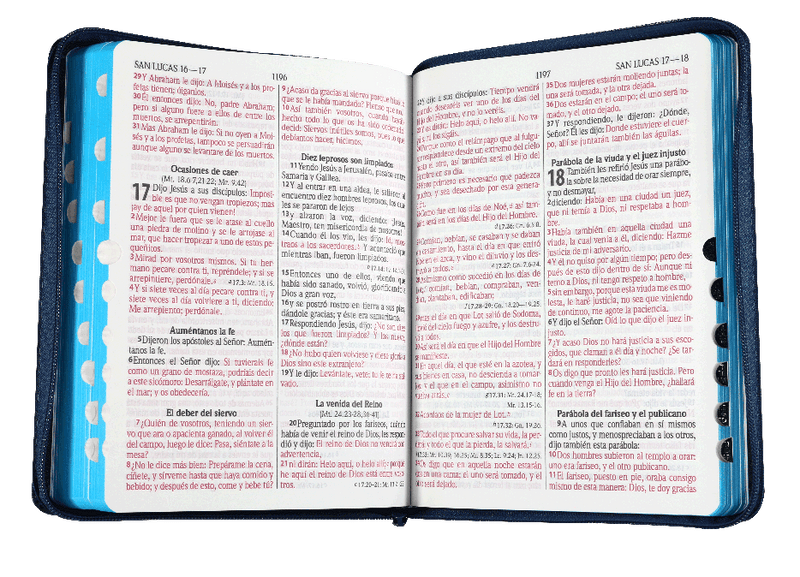 SAN LUCAS 16—17
1196
29Y Abraham le dijo: A Moisés y a los profetas
tienen; óiganlos.
30Él entonces dijo: No, padre Abraham;
pero si alguno fuere a ellos de entre los
muertos, se arrepentirán.
31Mas Abraham le dijo: Si no oyen a Moisés
y a los profetas, tampoco se persuadirán
aunque alguno se levantare de los muertos.
Ocasiones de caer
(Mt. 18.6-7,21-22; Mr. 9.42)
17 Dijo Jesús a sus discípulos: Imposible
es que no vengan tropiezos; mas
¡ay de aquel por quien vienen!
2Mejor le fuera que se le atase al cuello
una piedra de molino y se le arrojase al
mar, que hacer tropezar a uno de estos pequeñitos.
3Mirad por vosotros mismos. Si tu hermano
pecare contra ti, repréndele; y si se
arrepintiere, perdónale.
4Y si siete veces al día pecare contra ti, y
siete veces al día volviere a ti, diciendo:
Me arrepiento; perdónale.
Auméntanos la fe
5Dijeron los apóstoles al Señor: Auméntanos
la fe.
6Entonces el Señor dijo: Si tuvierais fe
como un grano de mostaza, podríais decir
a este sicómoro: Desarráigate, y plántate en
el mar; y os obedecería.
El deber del siervo
7¿Quién de vosotros, teniendo un siervo
que ara o apacienta ganado, al volver él
del campo, luego le dice: Pasa, siéntate a la
mesa?
8¿No le dice más bien: Prepárame la cena,
cíñete, y sírveme hasta que haya comido y
bebido; y después de esto, come y bebe tú?
9¿Acaso da gracias al siervo porque hizo
que se le había mandado? Pienso que no.
10Así también vosotros, cuando hayáis
hecho todo lo que os ha sido ordenado,
decid: Siervos inútiles somos, pues lo que
debíamos hacer, hicimos.
Diez leprosos son limpiados
11Yendo Jesús a Jerusalén, pasaba entre
Samaria y Galilea.
12Y al entrar en una aldea, le salieron al
encuentro diez hombres leprosos, los cuales
se pararon de lejos
13y alzaron la voz, diciendo: ¡Jesús,
Maestro, ten misericordia de nosotros!
14Cuando él los vio, les dijo: Id, mostraos
a los sacerdotes. Y aconteció que
mientras iban, fueron limpiados.
15Entonces uno de ellos, viendo que
había sido sanado, volvió, glorificando a
Dios a gran voz,
16y se postró rostro en tierra a sus pies,
dándole gracias; y éste era samaritano.
17Respondiendo Jesús, dijo: ¿No son diez
los que fueron limpiados? Y los nueve,
¿dónde están?
18¿No hubo quien volviese y diese gloria a
Dios sino este extranjero?
19Y le dijo: Levántate, vete; tu fe te ha salvado.
La venida del Reino
(Mt. 24.23-28,36-41)
20Preguntado por los fariseos, cuándo
había de venir el reino de Dios, les respondió
y dijo: El reino de Dios no vendrá con
advertencia,
21ni dirán: Helo aquí, o helo allí; porque
he aquí el reino de Dios está entre vosotros.
1197
SAN LUCAS 17—18
22Y dijo a sus discípulos: Tiempo vendrá
cuando desearéis ver uno de los días del
Hijo del Hombre, y no lo veréis.
23Y os dirán: Helo aquí, o helo allí. No vayáis,
ni los sigáis.
24Porque como el relámpago que al fulgurar
resplandece desde un extremo del cielo
hasta el otro, así también será el Hijo del
Hombre en su día.
25Pero primero es necesario que padezca
mucho, y sea desechado por esta generación.
26Como fue en los días de Noé, así también
será en los días del Hijo del Hombre.
27Comían, bebían, se casaban y se daban
en casamiento, hasta el día en que entró
Noé en el arca, y vino el diluvio y los destruyó
a todos.
28Asimismo como sucedió en los días de
Lot; comían, bebían, compraban, vendían,
plantaban, edificaban;
29mas el día en que Lot salió de Sodoma,
llovió del cielo fuego y azufre, y los destruyó
a todos.
30Así será el día en que el Hijo del Hombre
se manifieste.
31En aquel día, el que esté en la azotea, y
sus bienes en casa, no descienda a tomarlos;
y el que en el campo, asimismo no
vuelva atrás.
32Acordaos de la mujer de Lot.
33Todo el que procure salvar su vida, la perderá;
y todo el que la pierda, la salvará.
34Os digo que en aquella noche estarán
dos en una cama; el uno será tomado, y el
otro será dejado.
35Dos mujeres estarán moliendo juntas; la
una será tomada, y la otra dejada.
36Dos estarán en el campo; el uno será tomado,
y el otro dejado.
37Y respondiendo, le dijeron: ¿Dónde,
Señor? Él les dijo: Donde estuviere el cuerpo,
allí se juntarán también las águilas.
Parábola de la viuda y el juez injusto
18 También les refirió Jesús una parábola
sobre la necesidad de orar siempre,
y no desmayar,
2diciendo: Había en una ciudad un juez,
que ni temía a Dios, ni respetaba a hombre.
3Había también en aquella ciudad una
viuda, la cual venía a él, diciendo: Hazme
justicia de mi adversario.
4Y él no quiso por algún tiempo; pero después
de esto dijo dentro de sí: Aunque ni
temo a Dios, ni tengo respeto a hombre,
5sin embargo, porque esta viuda me es molesta,
le haré justicia, no sea que viniendo
de continuo, me agote la paciencia.
6Y dijo el Señor: Oíd lo que dijo el juez injusto.
7¿Y acaso Dios no hará justicia a sus escogidos,
que claman a él día y noche? ¿Se tardará
en responderles?
8Os digo que pronto les hará justicia. Pero
cuando venga el Hijo del Hombre, ¿hallará
fe en la tierra?
Parábola del fariseo y el publicano
9A unos que confiaban en sí mismos
como justos, y menospreciaban a los otros,
dijo también esta parábola:
10Dos hombres subieron al templo a orar:
uno era fariseo, y el otro publicano.
11El fariseo, puesto en pie, oraba consigo
mismo de esta manera: Dios, te doy gracias